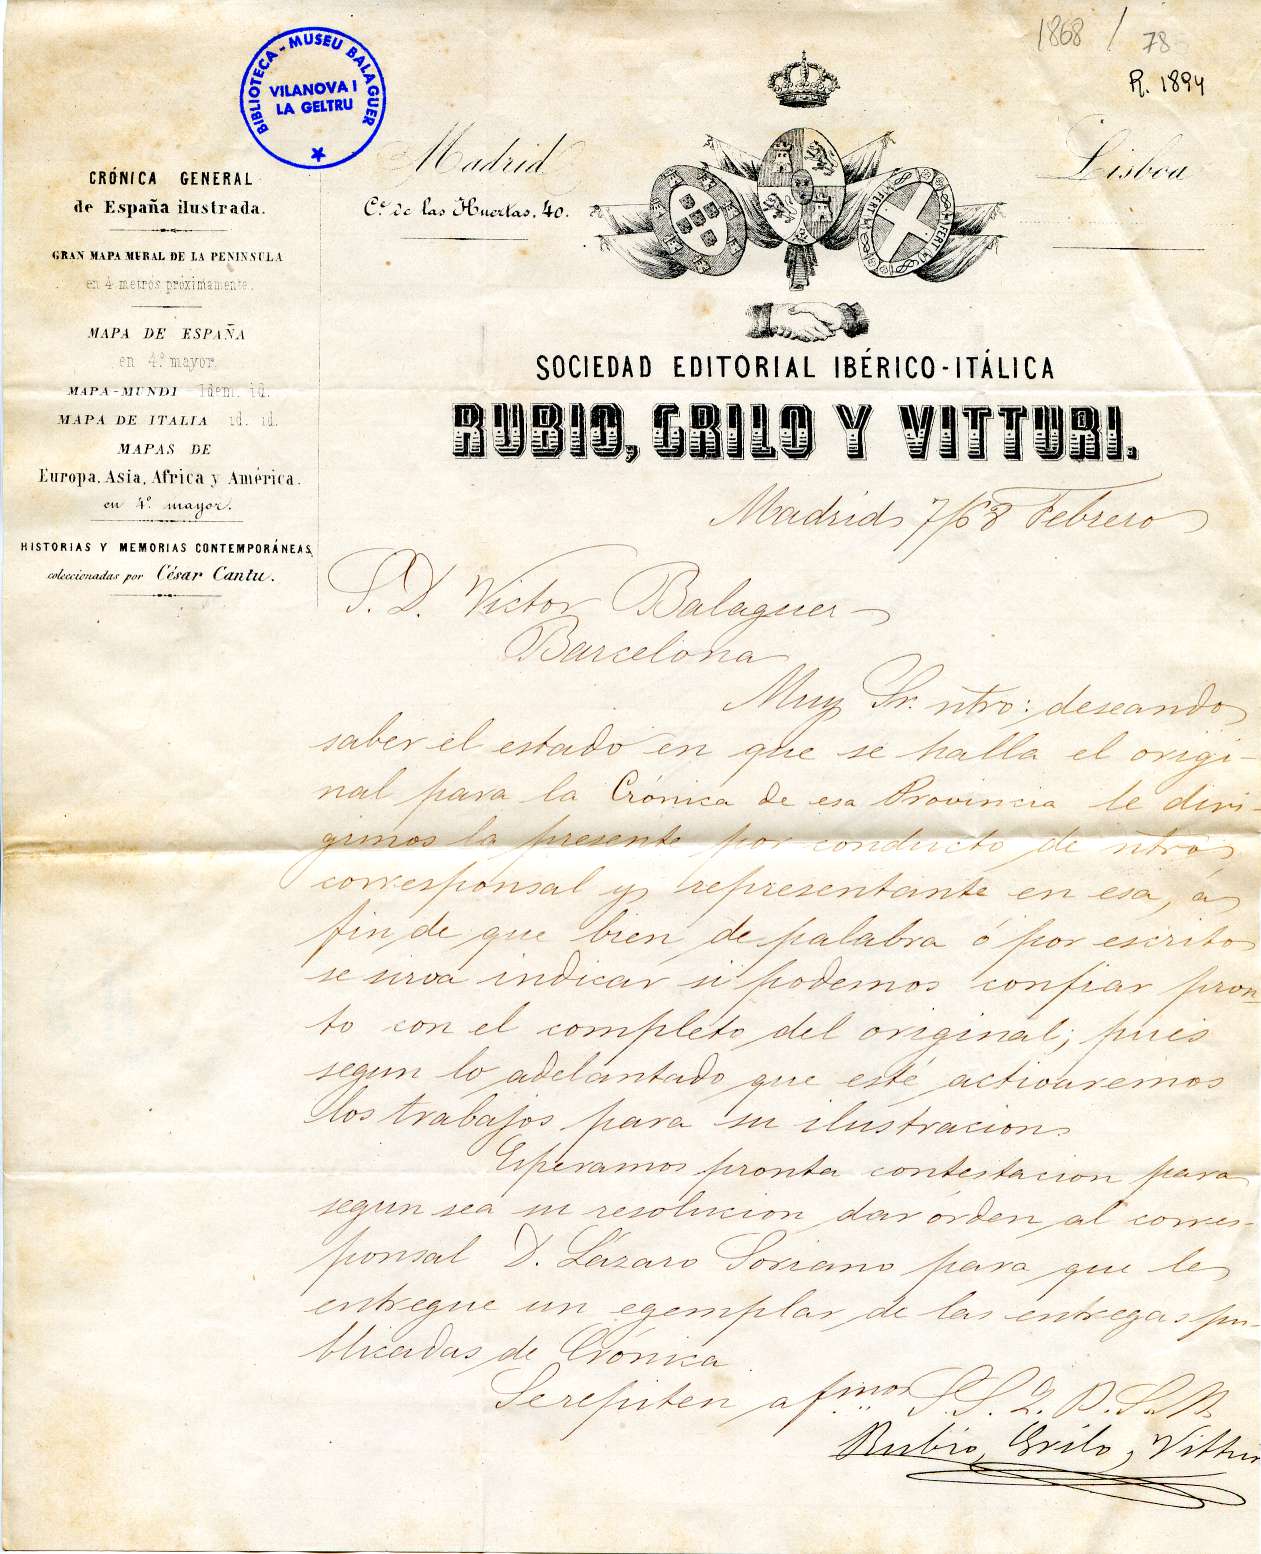 1868 / 78
R. 1894
BIBLIOTECA - MUSEU BALAGUER
VILANOVA I
LA GELTRU
Madrid
C.e de las Huertas, 40.
Lisboa
FERT FERT
CRÓNICA GENERAL
de España ilustrada.
GRAN MAPA MURAL DE LA PENINSULA
en 4 metros próximamente.
MAPA DE ESPAÑA
en 4º mayor.
MAPA-MUNDI idem. id.
MAPA DE ITALIA id. id.
MAPAS DE
Europa, Asia, Africa y América.
en 4º mayor.
HISTORIAS Y MEMORIAS CONTEMPORÁNEAS,
coleccionadas por César Cantu.
SOCIEDAD EDITORIAL IBÉRICO-ITÁLICA
RUBIO, GRILO Y VITTURI.
Madrid 7/68 Febrero
S. D. Victor Balaguer
Barcelona
Muy Sr. ntro: deseando
saber el estado en que se halla el origi-
nal para la Crónica de esa Provincia le diri-
gimos la presente por conducto de ntro
corresponsal y representante en esa, á
fin de que bien de palabra ó por escrito
se sirva indicar si podemos confiar pron-
to con el completo del original; pues
segun lo adelantado que esté activaremos
los trabajos para su ilustracion.
Esperamos pronta contestacion para
segun sea su resolucion dar órden al corres-
ponsal D. Lázaro Soriano para que le
entregue un egemplar de las entregas pu-
blicadas de Crónica.
Se repiten afmos S. S. Q. B. S. M.
Rubio, Grilo, Vitturi